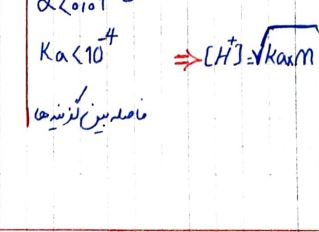 α<0/01
Ka<10⁻⁴ ⇒ [H⁺]=√Ka×M
فاصله بین گزینه ها